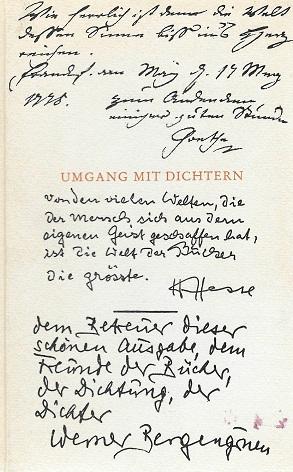 Wie herrlich ist denn die Welt
dessen Sinne biss ins Herz
reichen.
Frankf. am Mayn d. 17 May
1775. zum Andencken
einiger guten Stunden
Goethe
UMGANG MIT DICHTERN
Von den vielen Welten, die
der Mensch sich aus dem
eigenen Geist geschaffen hat,
ist die Welt der Bücher
die grösste.
HHesse
dem Betreuer dieser
schönen Ausgabe, dem
Freunde der Bücher,
der Dichtung, der
Dichter
Werner Bergengruen